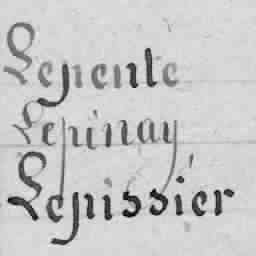 Lepente
Lepinay
Lepissiér